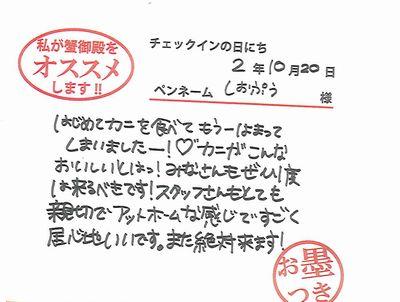 私が蟹御殿を
オススメ
します!!
チェックインの日にち
2年10月20日
ペンネーム しおぷう 様
はじめてカニを食べてもうーはまって
しまいましたー!♡カニがこんな
おいしいとはっ!みなさんもぜひ1度
は来るべきです!スタッフさんもとても
親切でアットホームな感じですごく
居心地いいです。また絶対来ます!
お墨つき